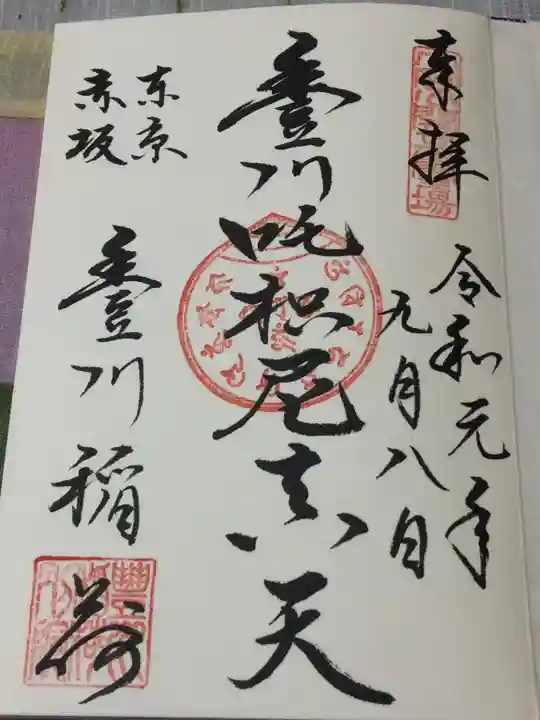 奉拝
令和元年
九月八日
豊川吒枳尼真天
東京
赤坂
豊川稲荷